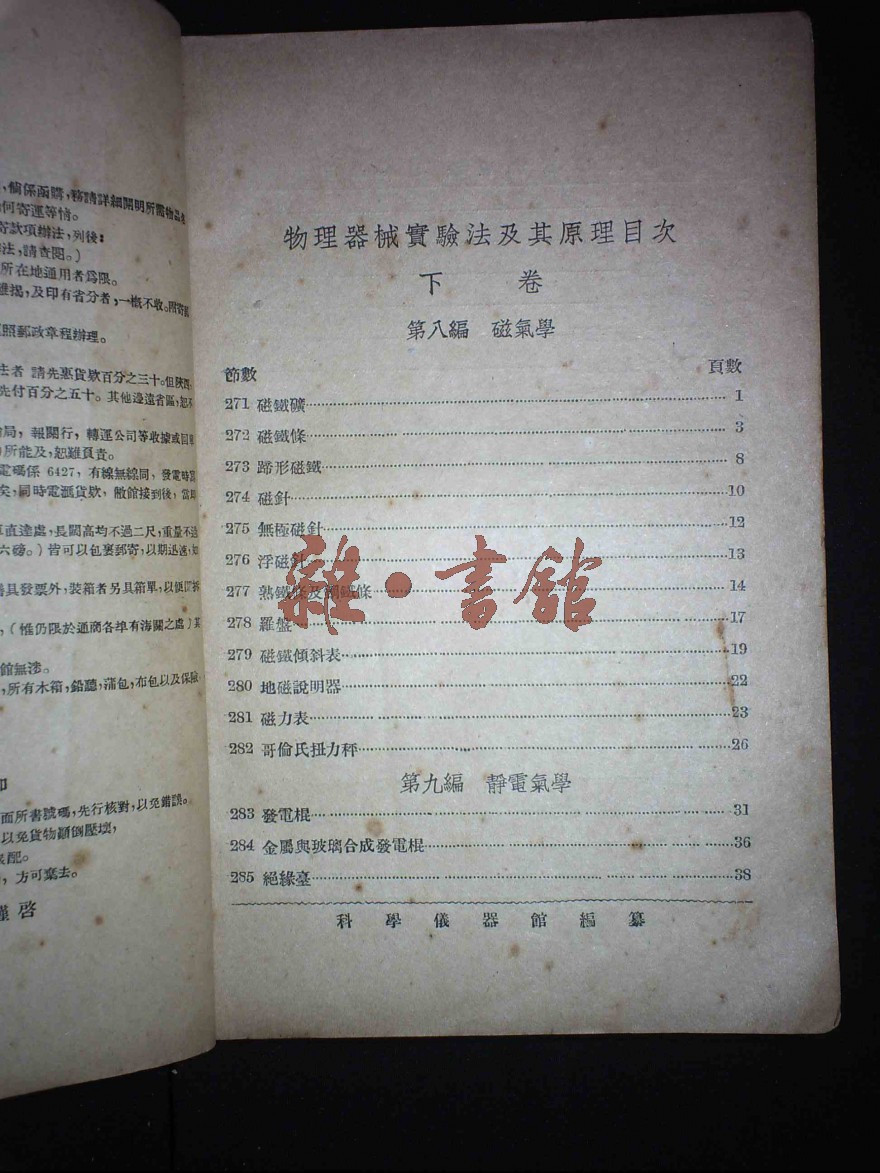 ，倘係函購，務請詳細開明所需物品
何寄運等情。
寄款項辦法，列後：
法，請查閱。）
所在地通用者爲限。
及印有省分者，一概不收。
照郵政章程辦理。
者 請先惠貨款百分之三十。
先付百分之五十。其他邊遠省區，恕不
局，報關行，轉運公司等收據或回單
所能及，恕難負責。
電碼係 6427，有線無線同，發電時
矣，同時電滙貨款，敝館接到後，當即
直達處，長闊高均不過二尺，重量不過
六磅。）皆可以包裹郵寄，以期迅速，如
具發票外，裝箱者另具箱單，以便
，（惟仍限於通商各埠有海關之處）其
館無涉。
，所有木箱，鉛聽，蒲包，布包以及保險
面所書號碼，先行核對，以免錯誤。
以免貨物顚倒壓壞，
配。
，方可棄去。
謹啓
物理器械實驗法及其原理目次
下 卷
第八編 磁氣學
節數 頁數
271 磁鐵礦 1
272 磁鐵條 3
273 蹄形磁鐵 8
274 磁針 10
275 無極磁針 12
276 浮磁針 13
277 熟鐵條及鋼鐵條 14
278 羅盤 17
279 磁鐵傾斜表 19
280 地磁說明器 22
281 磁力表 23
282 哥倫氏扭力秤 26
第九編 靜電氣學
283 發電棍 31
284 金屬與玻璃合成發電棍 36
285 絕緣臺 38
科學儀器館編纂
雜·書館